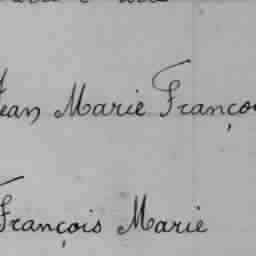 Jean Marie Franço
François Marie